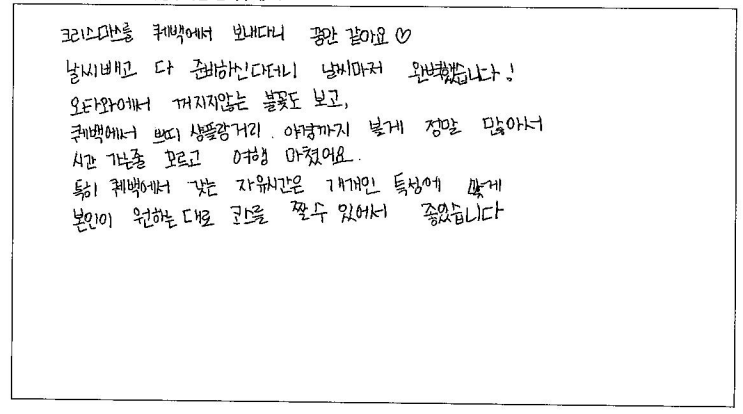 크리스마스를 퀘백에서 보내다니 꿈만 같아요 ♡
날씨빼고 다 준비하신다더니 날씨마저 완벽했습니다!
오타와에서 꺼지지않는 불꽃도 보고,
퀘백에서 쁘띠 샹플랑거리. 야경까지 볼게 정말 많아서
시간 가는줄 모르고 여행 마쳤어요.
특히 퀘백에서 갖는 자유시간은 개개인 특성에 맞게
본인이 원하는대로 코스를 짤수 있어서 좋았습니다